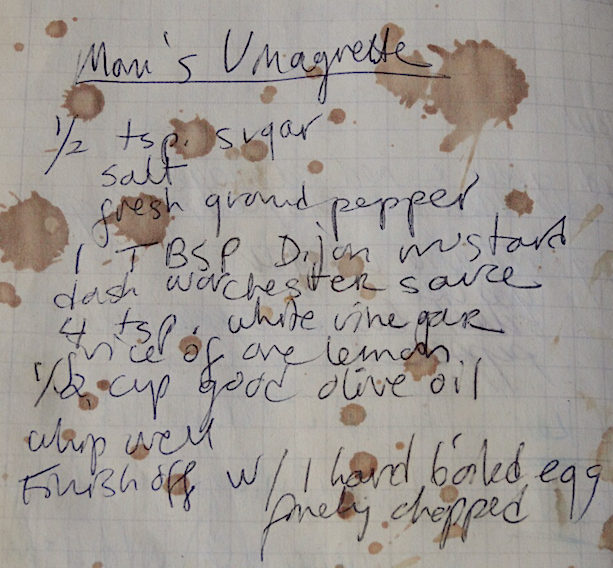 Mom's Vinagrette
1/2 tsp. sugar
salt
fresh ground pepper
1 TBSP Dijon mustard
dash worchester sauce
4 tsp. white vinegar
juice of one lemon
1/2 cup good olive oil
whip well
Finish off w/ 1 hard boiled egg
finely chopped